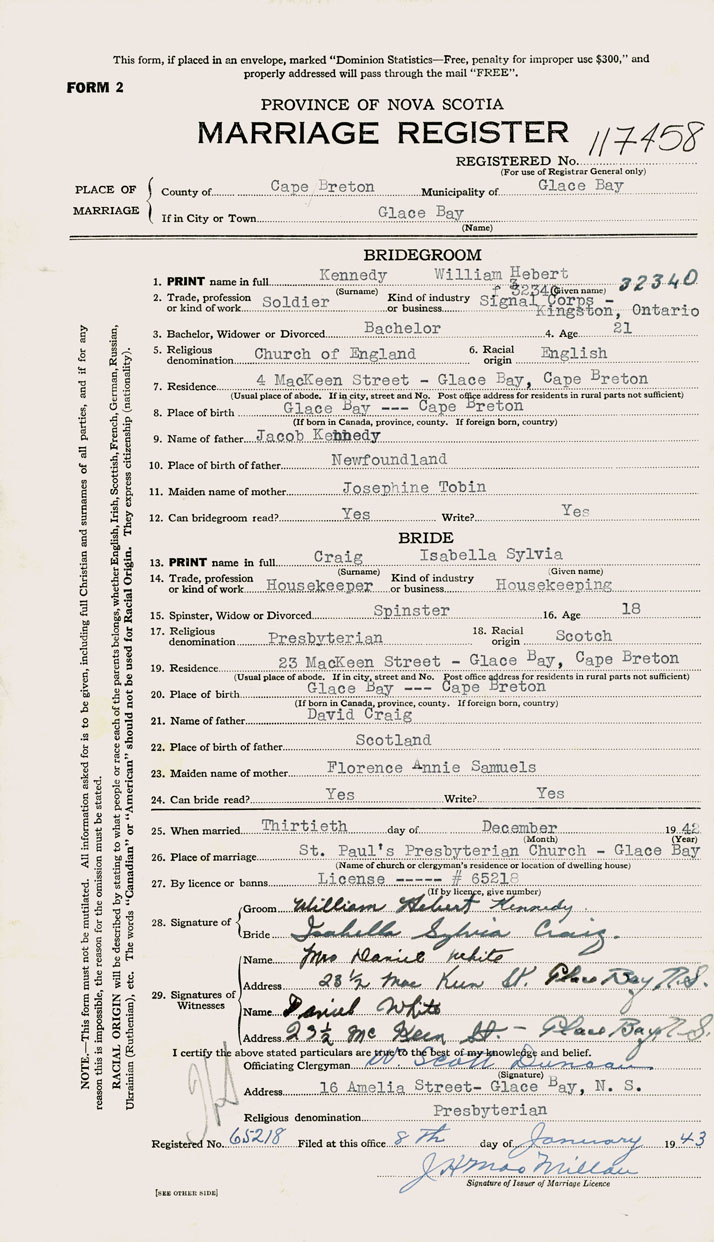 This form, if placed in an envelope, marked "Dominion Statistics—Free, penalty for improper use $300," and
properly addressed will pass through the mail "FREE".
FORM 2
PROVINCE OF NOVA SCOTIA
MARRIAGE REGISTER
117458
REGISTERED No.
(For use of Registrar General only)
PLACE OF MARRIAGE
County of Cape Breton Municipality of Glace Bay
If in City or Town Glace Bay
(Name)
BRIDEGROOM
1. PRINT name in full Kennedy William Hebert
(Surname) (Given name)
F 32340 32340
2. Trade, profession or kind of work Soldier Kind of industry or business Signal Corps - Kingston, Ontario
3. Bachelor, Widower or Divorced Bachelor 4. Age 21
5. Religious denomination Church of England 6. Racial origin English
7. Residence 4 MacKeen Street - Glace Bay, Cape Breton
(Usual place of abode. If in city, street and No. Post office address for residents in rural parts not sufficient)
8. Place of birth Glace Bay --- Cape Breton
(If born in Canada, province, county. If foreign born, country)
9. Name of father Jacob Kennedy
10. Place of birth of father Newfoundland
11. Maiden name of mother Josephine Tobin
12. Can bridegroom read? Yes Write? Yes
BRIDE
13. PRINT name in full Craig Isabella Sylvia
(Surname) (Given name)
14. Trade, profession or kind of work Housekeeper Kind of industry or business Housekeeping
15. Spinster, Widow or Divorced Spinster 16. Age 18
17. Religious denomination Presbyterian 18. Racial origin Scotch
19. Residence 23 MacKeen Street - Glace Bay, Cape Breton
(Usual place of abode. If in city, street and No. Post office address for residents in rural parts not sufficient)
20. Place of birth Glace Bay --- Cape Breton
(If born in Canada, province, county. If foreign born, country)
21. Name of father David Craig
22. Place of birth of father Scotland
23. Maiden name of mother Florence Annie Samuels
24. Can bride read? Yes Write? Yes
25. When married Thirtieth day of December 1942
(Month) (Year)
26. Place of marriage St. Paul's Presbyterian Church - Glace Bay
(Name of church or clergyman's residence or location of dwelling house)
27. By licence or banns License ----- # 65218
(If by licence, give number)
28. Signature of
Groom William Hebert Kennedy
Bride Isabella Sylvia Craig.
29. Signatures of Witnesses
Name Mrs Daniel White
Address 23½ Mac Keen St. Glace Bay N.S.
Name Daniel White
Address 23½ Mc Keen St. - Glace Bay N.S.
I certify the above stated particulars are true to the best of my knowledge and belief.
Officiating Clergyman W. Scott Duncan
(Signature)
Address 16 Amelia Street- Glace Bay, N. S.
Religious denomination Presbyterian
Registered No. 65218 Filed at this office 8th day of January 1943
J H Mac Millan
Signature of Issuer of Marriage Licence
[SEE OTHER SIDE]
NOTE.—This form must not be mutilated. All information asked for is to be given, including full Christian and surnames of all parties, and if for any
reason this is impossible, the reason for the omission must be stated.
RACIAL ORIGIN will be described by stating to what people or race each of the parents belongs, whether English, Irish, Scottish, French, German, Russian,
Ukrainian (Ruthenian), etc. The words "Canadian" or "American" should not be used for Racial Origin. They express citizenship (nationality).